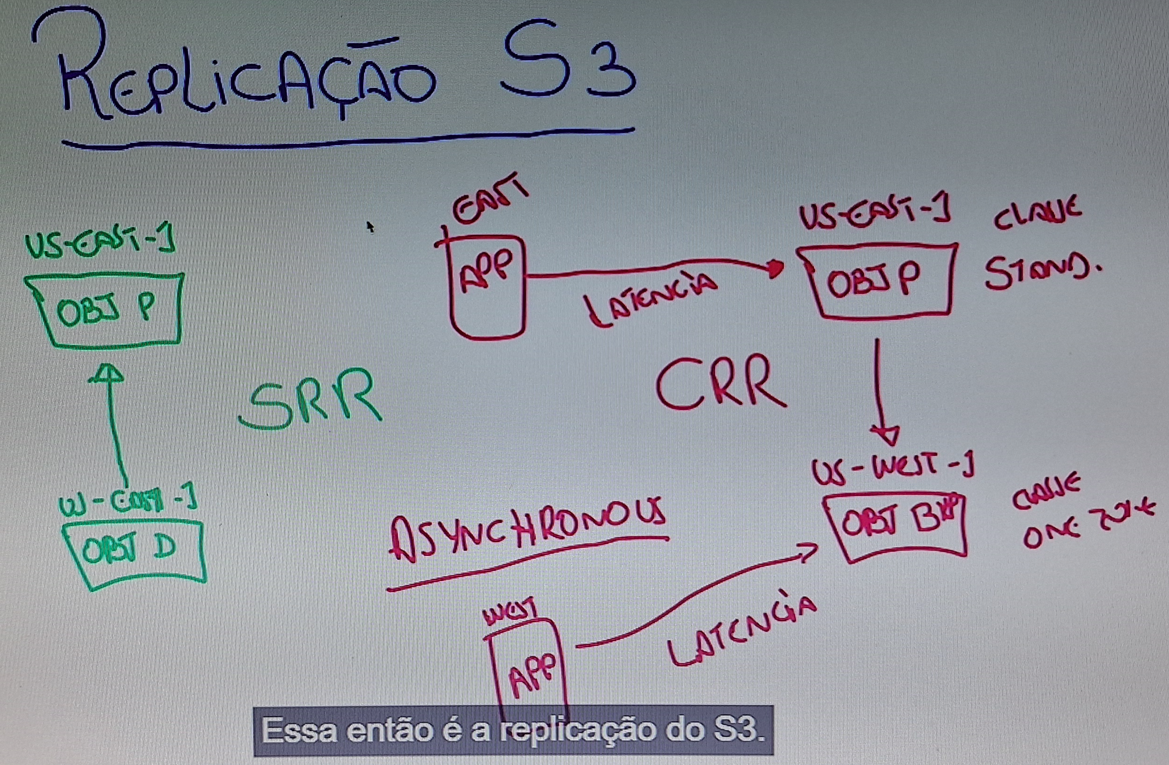 REPLICAÇÃO S3
US-EAST-1
OBJ P
SRR
US-EAST-1
OBJ D
EAST
APP
LATENCIA
US-EAST-1
OBJ P
CLASSE
STAND.
CRR
US-WEST-1
OBJ BKP
CLASSE
ONE ZONE
ASYNCHRONOUS
WEST
APP
LATENCIA
Essa então é a replicação do S3.